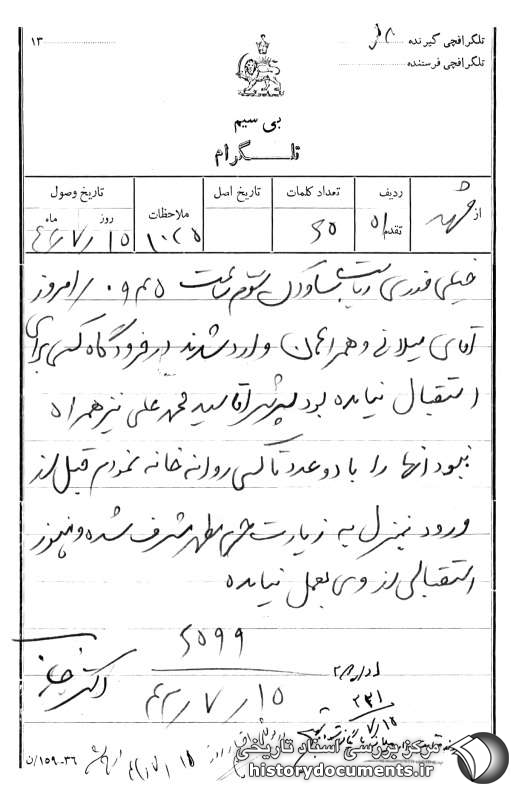 تلگرافچی گیرنده
۱۳
تلگرافچی فرستنده
بی سیم
تلگرام
از مشهد
ردیف
تقدم ۵۱
تعداد کلمات
۶۵
تاریخ اصل
ملاحظات
۱۰۲۵
تاریخ وصول
روز
ماه
۱۵/۷/۴۳
خیلی فوری ریاست ساواک سوم ساعت ۰۹۴۵ امروز
آقای میلانی و همراهان وارد شدند در فرودگاه کسی برای
استقبال نیامده بود پسرش آقا سید محمد علی نیز همراه
نبود آنها را با دو عدد تاکسی روانه خانه نمودم قبل از
ورود بمنزل به زیارت حرم مطهر مشرف شده و هنوز
استقبالی از وی بعمل نیامده
۶۵۹۹
۱۵/۷/۴۳
اداره
۲۳۱
۷/۱۵
ن/۱۵۹-۳۶
مرکز بررسی اسناد تاریخی
historydocuments.ir